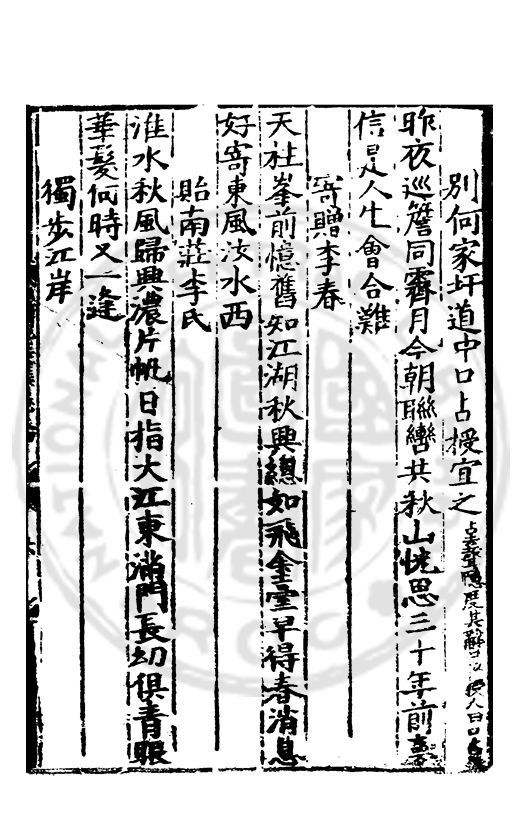 別何家圩道中口占授宜之占去聲隱度其辭口以授人曰口占
昨夜巡簷同霽月今朝聯轡共秋山恍思三十年前
信是人生會合難
寄贈李春
天社峯前憶舊知江湖秋興總如飛金臺早得春消息
好寄東風汝水西
貽南莊李氏
淮水秋風歸興濃片帆日指大江東滿門長幼俱青眼
華髮何時又一逢
獨步江岸